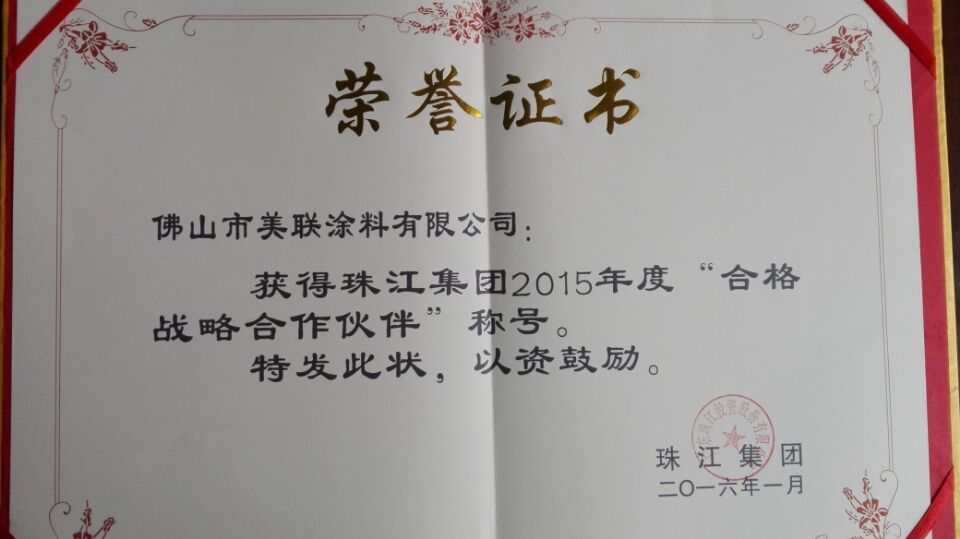 荣誉证书
佛山市美联涂料有限公司：
获得珠江集团2015年度“合格
战略合作伙伴”称号。
特发此状，以资鼓励。
珠江投资股份有限
珠江集团
二〇一六年一月